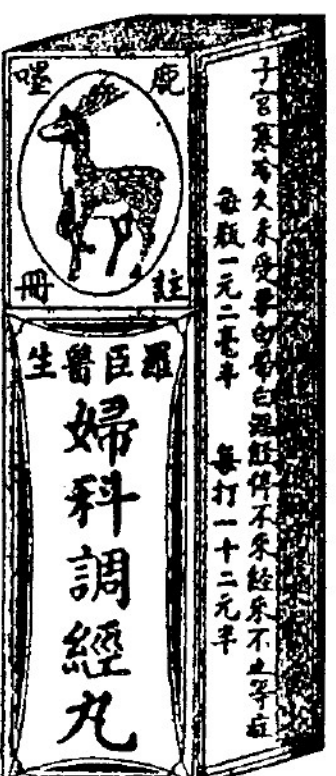 鹿嘜
註冊
羅臣醫生
婦科調經丸
子宮寒冷久未受孕白帶白濁經停不來經來不止等症
每瓶一元二毫半 每打一十二元半